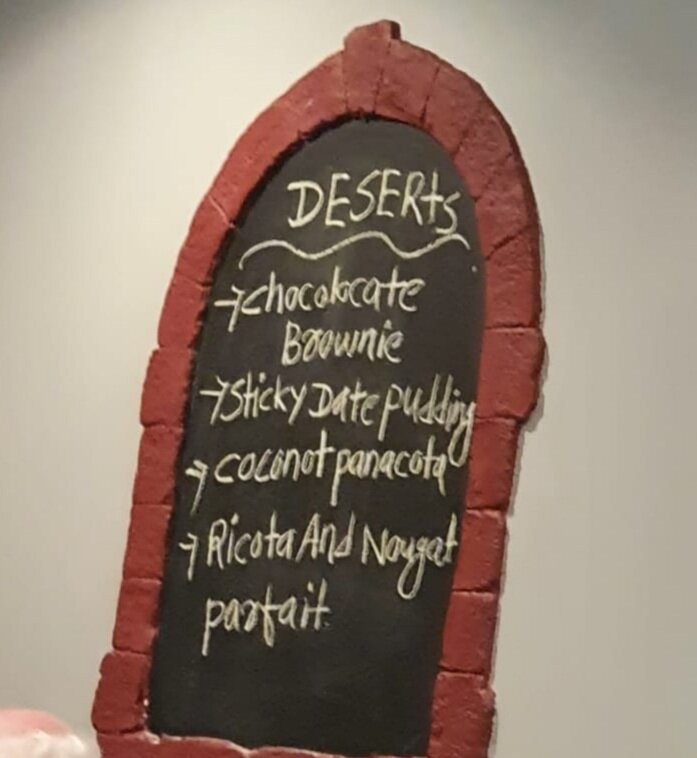 DESERtS
→chocolocate
Brownie
→Sticky Date pudding
→ coconot panacota
→ Ricota And Nougat
parfait